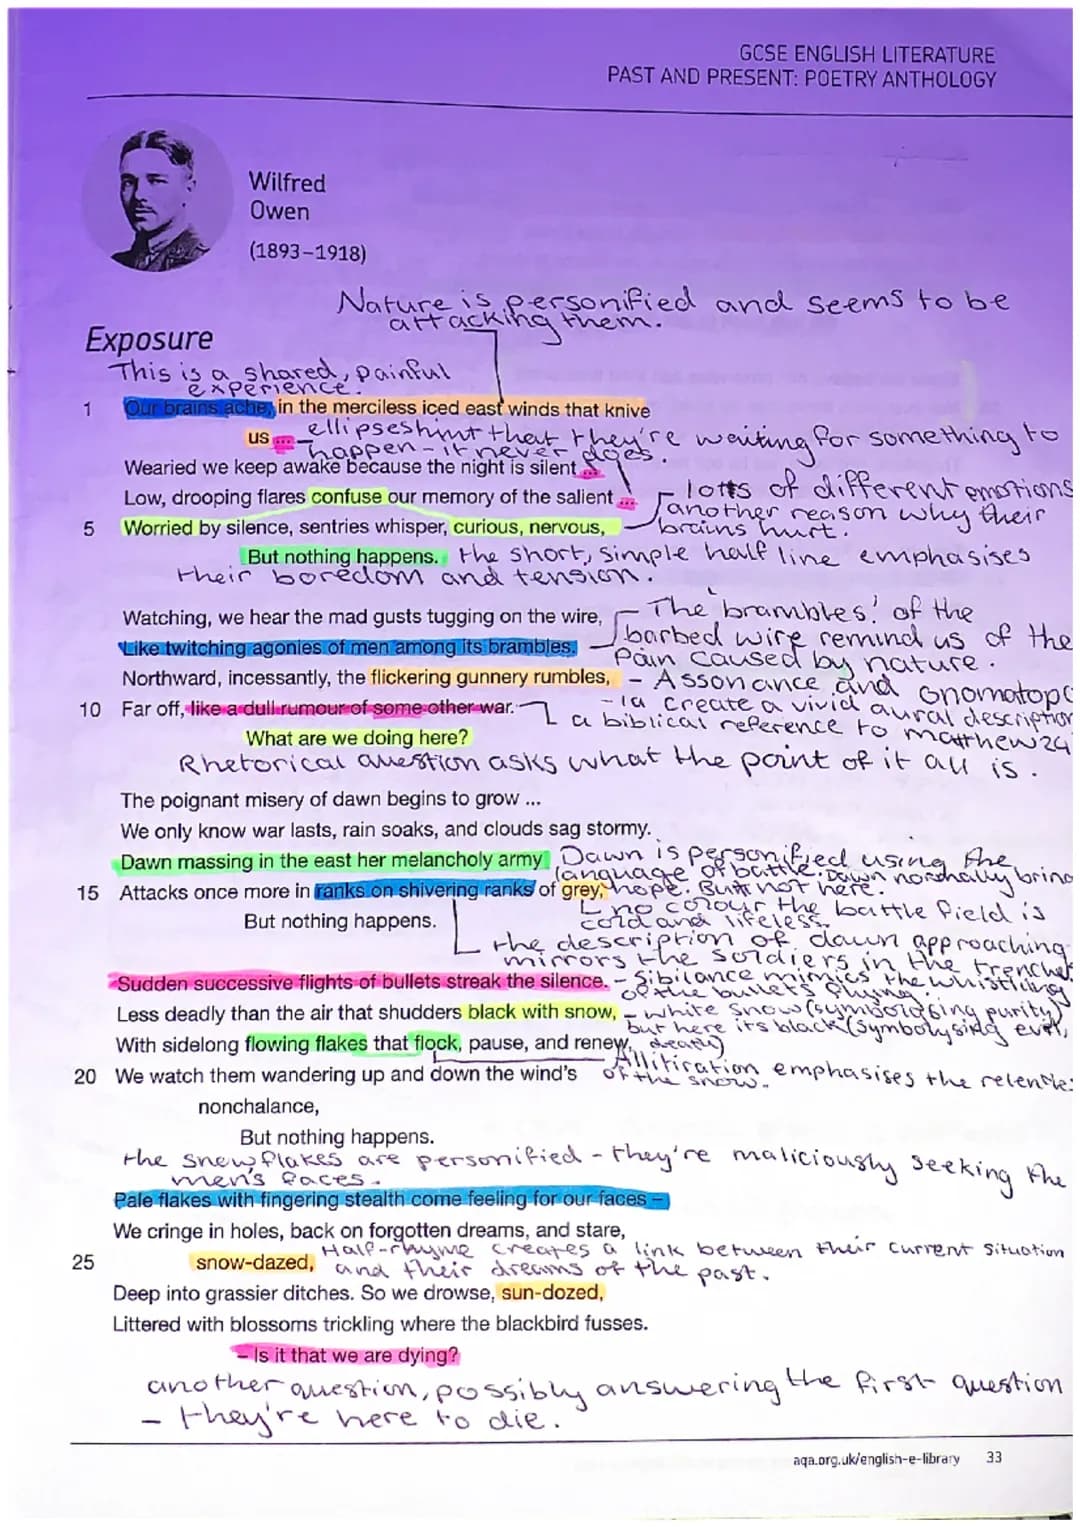 GCSE ENGLISH LITERATURE
PAST AND PRESENT: POETRY ANTHOLOGY
Wilfred
Owen
(1893–1918)
Nature is personified and seems to be
attacking them.
Exposure
This is a shared, painful
experience.
1 Our brains ache, in the merciless iced east winds that knive
us ...
ellipses hint that they're waiting for something to
happen - it never does.
Wearied we keep awake because the night is silent ...
Low, drooping flares confuse our memory of the salient ...
lotts of different emotions
another reason why their
brains hurt.
5 Worried by silence, sentries whisper, curious, nervous,
But nothing happens. the short, simple half line emphasises
their boredom and tension.
Watching, we hear the mad gusts tugging on the wire,
The 'brambles' of the
barbed wire remind us of the
pain caused by nature.
Like twitching agonies of men among its brambles.
Northward, incessantly, the flickering gunnery rumbles,
- Assonance and onomatopo
-ia create a vivid aural description
10 Far off, like a dull rumour of some other war.
a biblical reference to matthew 24
What are we doing here?
Rhetorical question asks what the point of it all is.
The poignant misery of dawn begins to grow ...
We only know war lasts, rain soaks, and clouds sag stormy.
Dawn massing in the east her melancholy army
Dawn is personified using the
language of battle. Dawn normally bring
hope. But not here.
15 Attacks once more in ranks on shivering ranks of grey,
no colour the battle field is
cold and lifeless.
But nothing happens.
the description of dawn approaching
mirrors the soldiers in the trenches
Sudden successive flights of bullets streak the silence.
- Sibilance mimics the whistling
of the bullets flying.
Less deadly than the air that shudders black with snow,
- white snow (symbologising purity)
but here its black (symbolysing evil,
death)
With sidelong flowing flakes that flock, pause, and renew,
Allitiration emphasises the relentles
of the snow.
20 We watch them wandering up and down the wind's
nonchalance,
But nothing happens.
the snowflakes are personified - they're maliciously seeking the
men's faces.
Pale flakes with fingering stealth come feeling for our faces –
We cringe in holes, back on forgotten dreams, and stare,
Half-rhyme creates a link between their current situation
and their dreams of the past.
25 snow-dazed,
Deep into grassier ditches. So we drowse, sun-dozed,
Littered with blossoms trickling where the blackbird fusses.
– Is it that we are dying?
another question, possibly answering the first question
- they're here to die.
aqa.org.uk/english-e-library 33